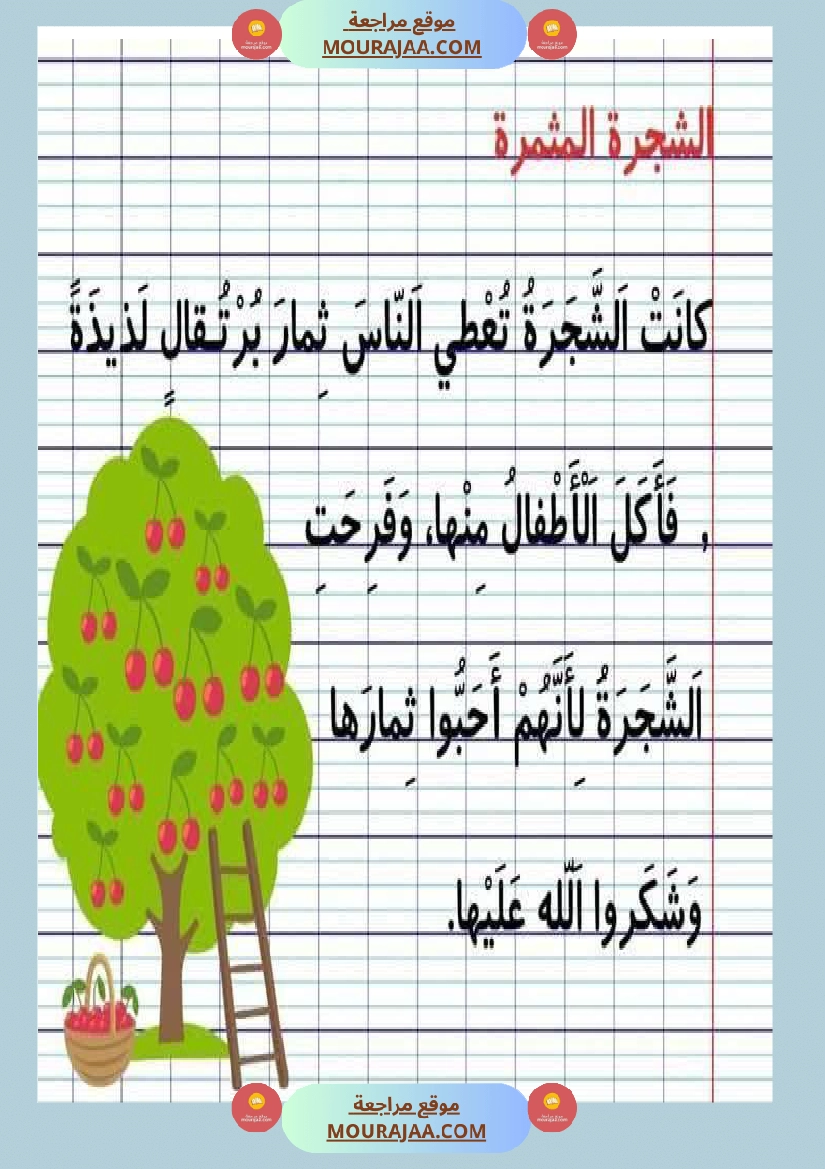 موقع مراجعة
MOURAJAA.COM
الشجرة المثمرة
كانَتْ اَلشَّجَرَةُ تُعْطي اَلنّاسَ ثِمارَ بُرْتُـقالٍ لَذيذَةً
, فَأَكَلَ اَلْأَطْفالُ مِنْها، وَفَرِحَتِ
اَلشَّجَرَةُ لِأَنَّهُمْ أَحَبُّوا ثِمارَها
وَشَكَروا اَلّله عَلَيْها.
موقع مراجعة
MOURAJAA.COM